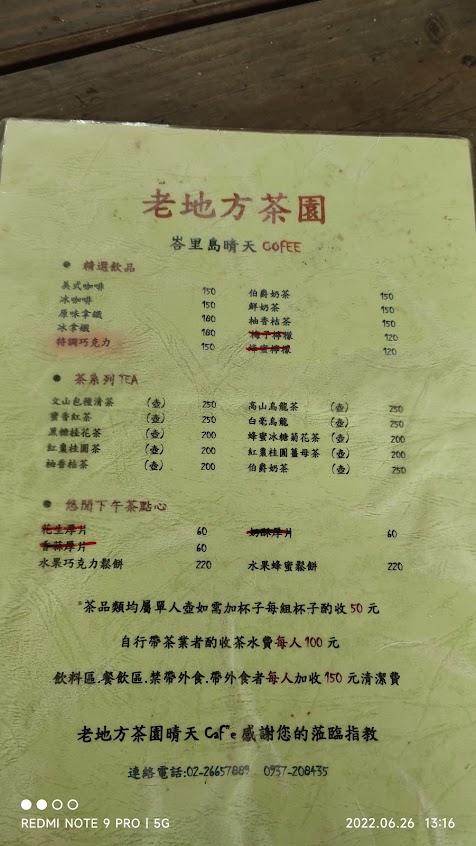 老地方茶園
峇里島晴天 COFEE
● 精選飲品
美式咖啡 150 伯爵奶茶 150
冰咖啡 150 鮮奶茶 150
原味拿鐵 180 柚香桔茶 150
冰拿鐵 180 梅子檸檬 120
特調巧克力 150 蜂蜜檸檬 120
● 茶系列 TEA
文山包種清茶 (壺) 250 高山烏龍茶 (壺) 250
蜜香紅茶 (壺) 250 白毫烏龍 (壺) 250
黑糖桂花茶 (壺) 200 蜂蜜冰糖菊花茶 (壺) 200
紅棗桂圓茶 (壺) 200 紅棗桂圓薑母茶 (壺) 200
柚香桔茶 (壺) 200 伯爵奶茶 (壺) 250
● 悠閒下午茶點心
花生厚片 60 奶酥厚片 60
香蒜厚片 60
水果巧克力鬆餅 220 水果蜂蜜鬆餅 220
*茶品類均屬單人壺如需加杯子每組杯子酌收 50 元
自行帶茶業者酌收茶水費每人 100 元
飲料區.餐飲區.禁帶外食.帶外食者每人加收 150 元清潔費
老地方茶園晴天 Caf'e 感謝您的蒞臨指教
連絡電話:02-26657889 0937-208435
REDMI NOTE 9 PRO | 5G 2022.06.26 13:16